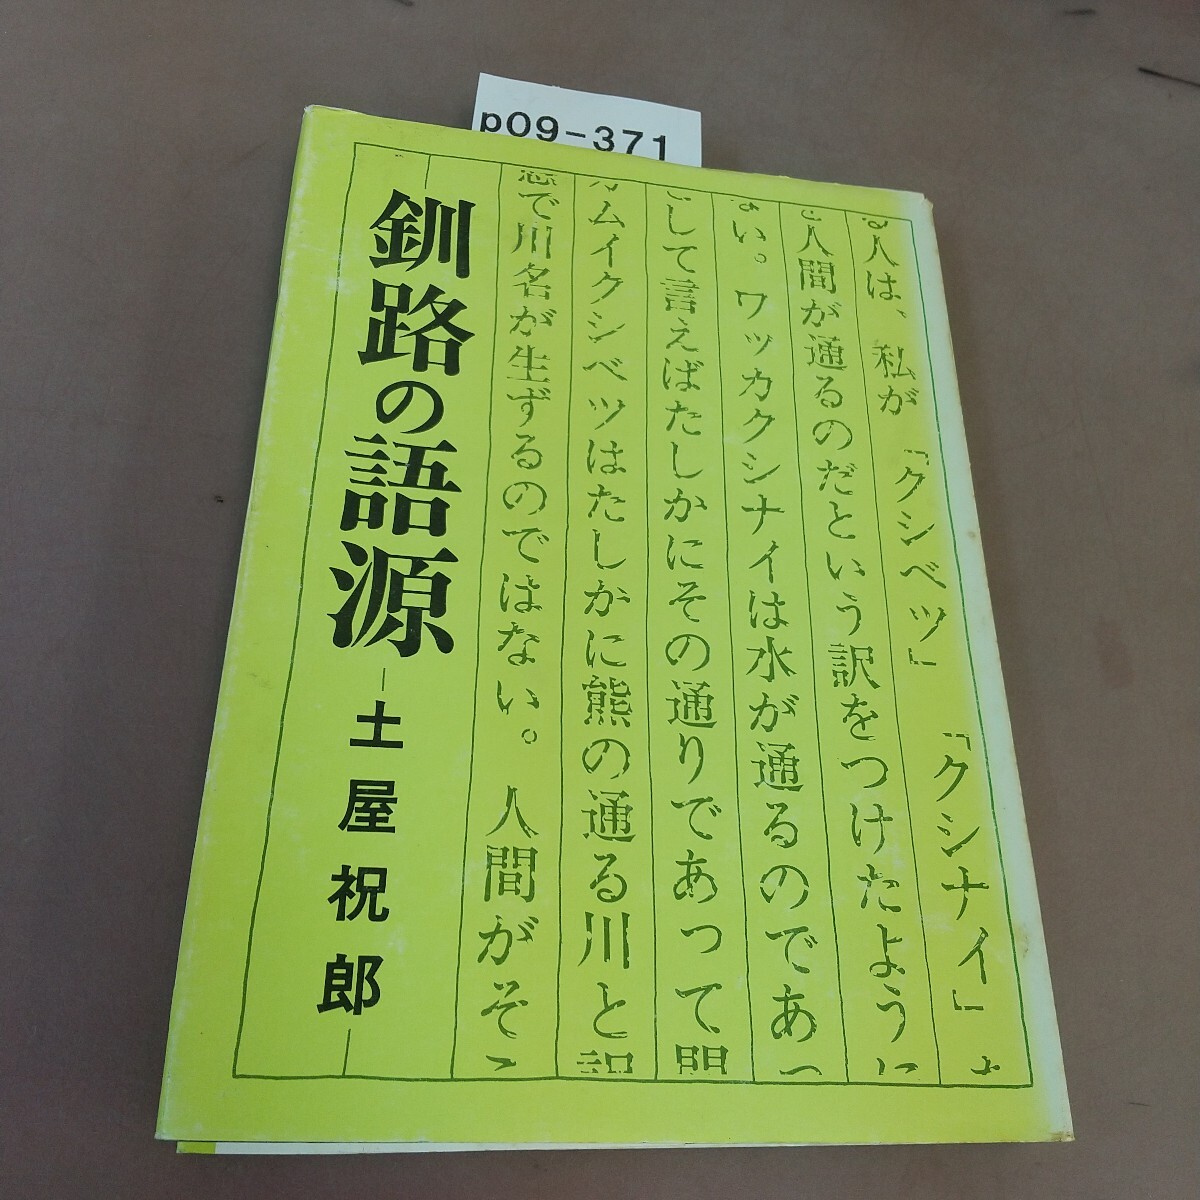 p09-371
る人は、私が「クシベツ」「クシナイ」
と人間が通るのだという訳をつけたように
ない。ワッカクシナイは水が通るのであっ
として言えばたしかにその通りであって
カムイクシベツはたしかに熊の通る川と訳
で川名が生ずるのではない。人間がそ
釧路の語源
土屋祝郎